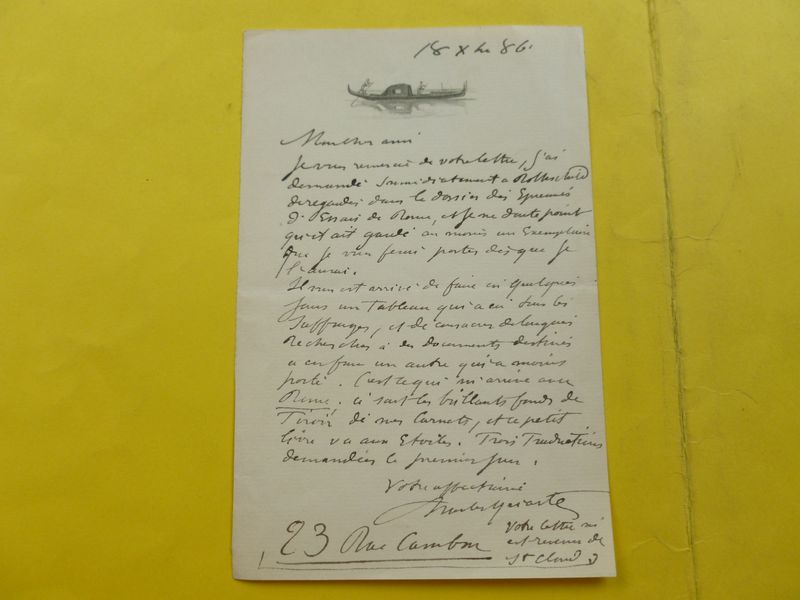 18 Xbre 86.
Mon cher ami
Je vous remercie de votre lettre, j'ai
demandé immédiatement a Rothschild
de regarder dans le dossier des Epreuves
d'Essais de Rome, et je ne doute point
qu'il ait gardé au moins un Exemplaire
que je vous ferai porter dès que je
l'aurai.
Il vous est arrivé de faire en quelques
jours un tableau qui a eu tous les
suffrages, et de consacrer de longues
recherches à des documents destinés
a en faire un autre qui a moins
porté. C'est ce qui m'arrive avec
Rome. ce sont les brillants fonds de
Tiroir de mes Carnets, et ce petit
livre va aux Etoiles. Trois Traductions
demandées le premier jour.
Votre affectionné
Charles Yriarte
23 Rue Cambon
Votre lettre m'
est revenue de
St Cloud